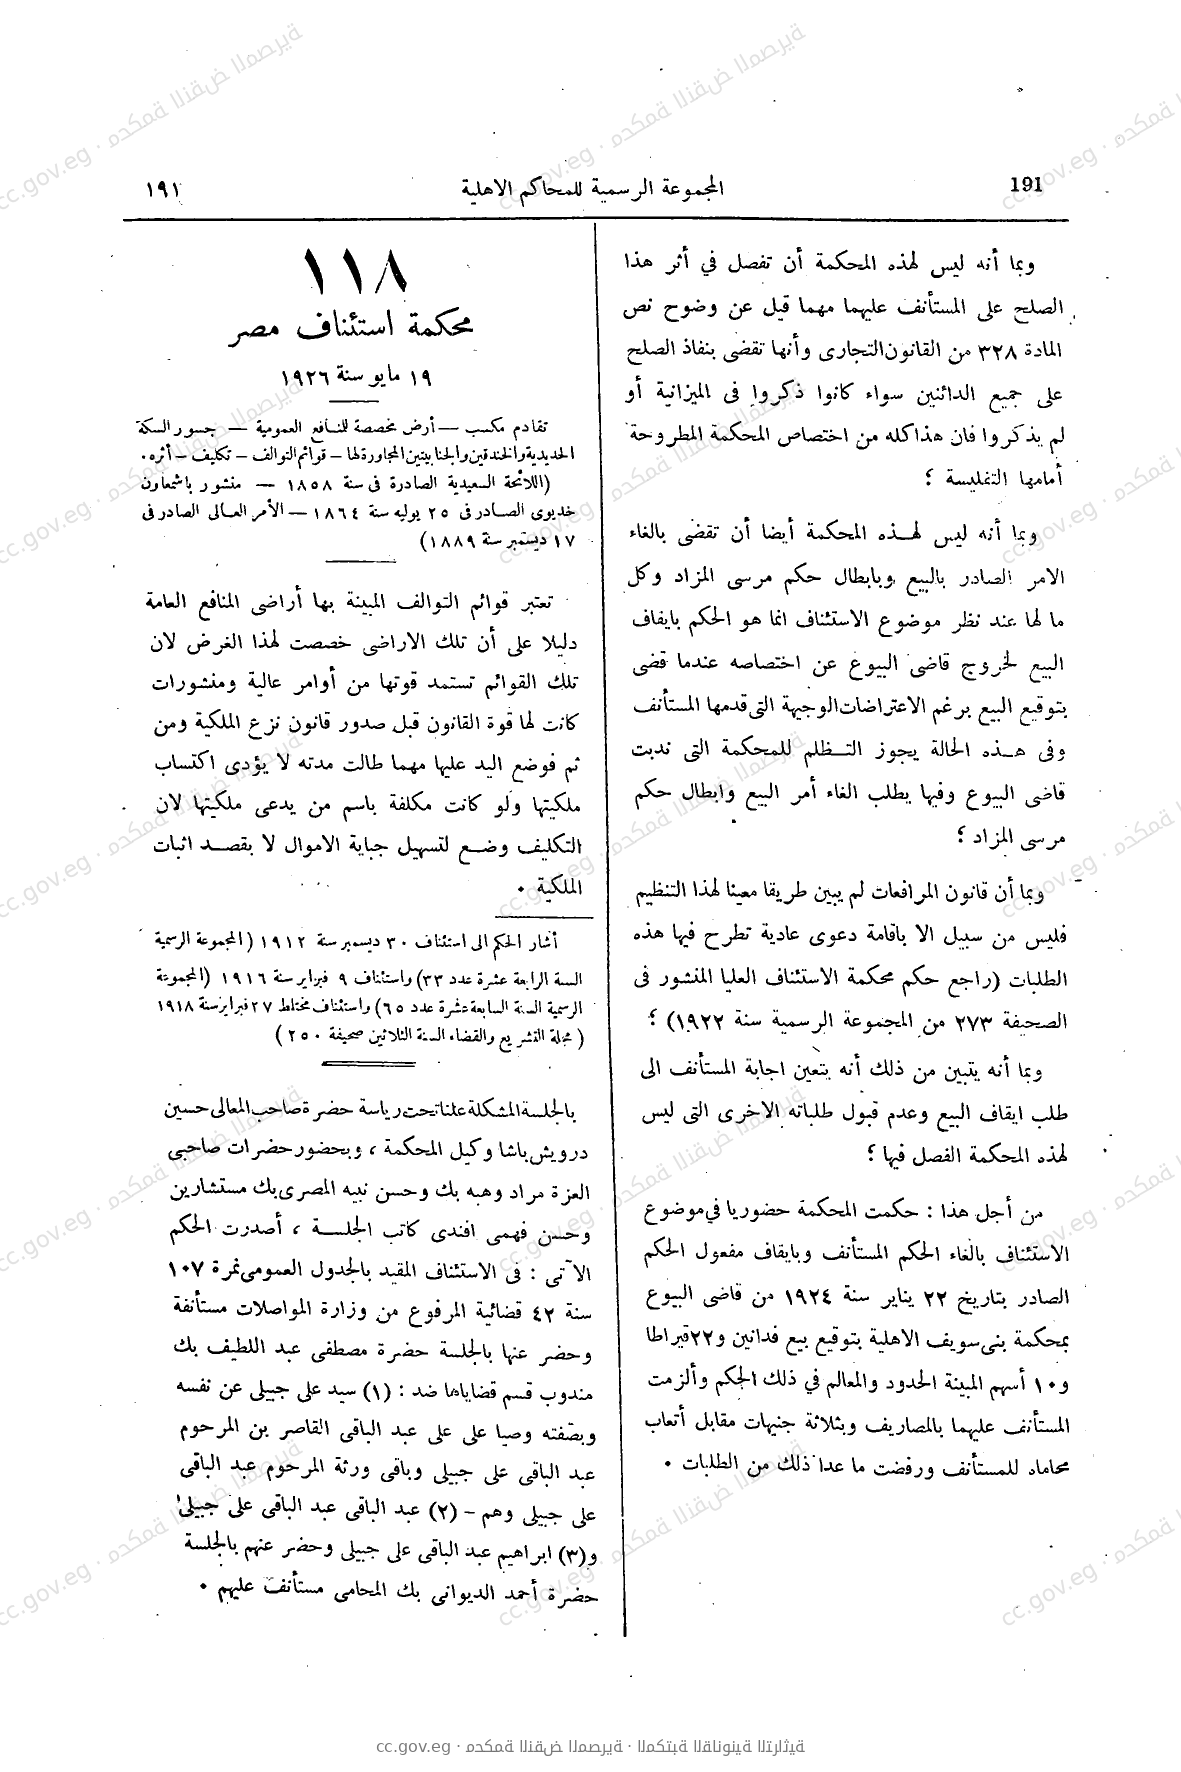 191
المجموعة الرسمية للمحاكم الاهلية
١٩١
وبما أنه ليس لهذه المحكمة أن تفصل في أثر هذا
الصلح على المستأنف عليهما مهما قيل عن وضوح نص
المادة ٣٢٨ من القانون التجارى وأنها تقضى بنفاذ الصلح
على جميع الدائنين سواء كانوا ذكروا فى الميزانية أو
لم يذكروا فان هذا كله من اختصاص المحكمة المطروحة
أمامها التفليسة ؛
وبما أنه ليس لهذه المحكمة أيضا أن تقضى بالغاء
الامر الصادر بالبيع وبابطال حكم مرسى المزاد وكل
ما لها عند نظر موضوع الاستئناف انما هو الحكم بايقاف
البيع لخروج قاضى البيوع عن اختصاصه عندما قضى
بتوقيع البيع برغم الاعتراضات الوجيهة التى قدمها المستأنف
وفى هذه الحالة يجوز التظلم للمحكمة التى ندبت
قاضى البيوع وفيها يطلب الغاء أمر البيع وابطال حكم
مرسى المزاد ؛
وبما أن قانون المرافعات لم يبين طريقا معينا لهذا التنظيم
فليس من سبيل الا باقامة دعوى عادية تطرح فيها هذه
الطلبات (راجع حكم محكمة الاستئناف العليا المنشور فى
الصحيفة ٢٧٣ من المجموعة الرسمية سنة ١٩٢٢) ؛
وبما أنه يتبين من ذلك أنه يتعين اجابة المستأنف الى
طلب ايقاف البيع وعدم قبول طلباته الاخرى التى ليس
لهذه المحكمة الفصل فيها ؛
من أجل هذا : حكمت المحكمة حضوريا في موضوع
الاستئناف بالغاء الحكم المستأنف وبايقاف مفعول الحكم
الصادر بتاريخ ٢٢ يناير سنة ١٩٢٤ من قاضى البيوع
بمحكمة بنى سويف الاهلية بتوقيع بيع فدانين و٢٢ قيراطا
و١٠ أسهم المبينة الحدود والمعالم في ذلك الحكم وألزمت
المستأنف عليهما بالمصاريف وبثلاثة جنيهات مقابل أتعاب
محاماه للمستأنف ورفضت ما عدا ذلك من الطلبات .
١١٨
محكمة استئناف مصر
١٩ مايو سنة ١٩٢٦
تقادم مكسب — أرض مخصصة للمنافع العمومية — جسور السكة
الحديدية والخندقين والجنابيتين المجاورة لها — قوائم التوالف — تكليف — أثره .
(اللائحة السعيدية الصادرة فى سنة ١٨٥٨ — منشور باشمعاون
خديوى الصادر فى ٢٥ يوليه سنة ١٨٦٤ — الأمر العالى الصادر فى
١٧ ديسمبر سنة ١٨٨٩)
تعتبر قوائم التوالف المبينة بها أراضى المنافع العامة
دليلا على أن تلك الاراضى خصصت لهذا الغرض لان
تلك القوائم تستمد قوتها من أوامر عالية ومنشورات
كانت لها قوة القانون قبل صدور قانون نزع الملكية ومن
ثم فوضع اليد عليها مهما طالت مدته لا يؤدى اكتساب
ملكيتها ولو كانت مكلفة باسم من يدعى ملكيتها لان
التكليف وضع لتسهيل جباية الاموال لا بقصد اثبات
الملكية .
أشار الحكم الى استئناف ٣٠ ديسمبر سنة ١٩١٢ (المجموعة الرسمية
السنة الرابعة عشرة عدد ٣٣) واستئناف ٩ فبراير سنة ١٩١٦ (المجموعة
الرسمية السنة السابعة عشرة عدد ٦٥) واستئناف مختلط ٢٧ فبراير سنة ١٩١٨
(مجلة التشريع والقضاء السنة الثلاثين صحيفة ٢٥٠)
بالجلسة المشكلة علنا تحت رياسة حضرة صاحب المعالى حسين
درويش باشا وكيل المحكمة ، وبحضور حضرات صاحبى
العزة مراد وهبه بك وحسن نبيه المصرى بك مستشارين
وحسن فهمى افندى كاتب الجلسة ، أصدرت الحكم
الآتى : فى الاستئناف المقيد بالجدول العمومى نمرة ١٠٧
سنة ٤٢ قضائية المرفوع من وزارة المواصلات مستأنفة
وحضر عنها بالجلسة حضرة مصطفى عبد اللطيف بك
مندوب قسم قضاياها ضد : (١) سيد على جبيلى عن نفسه
وبصفته وصيا على على عبد الباقى القاصر بن المرحوم
عبد الباقى على جبيلى وباقى ورثة المرحوم عبد الباقى
على جبيلى وهم - (٢) عبد الباقى عبد الباقى على جبيلى
و(٣) ابراهيم عبد الباقى على جبيلى وحضر عنهم بالجلسة
حضرة أحمد الديوانى بك المحامى مستأنف عليهم .
cc.gov.eg · محكمة النقض المصرية · المكتبة القانونية التراثية